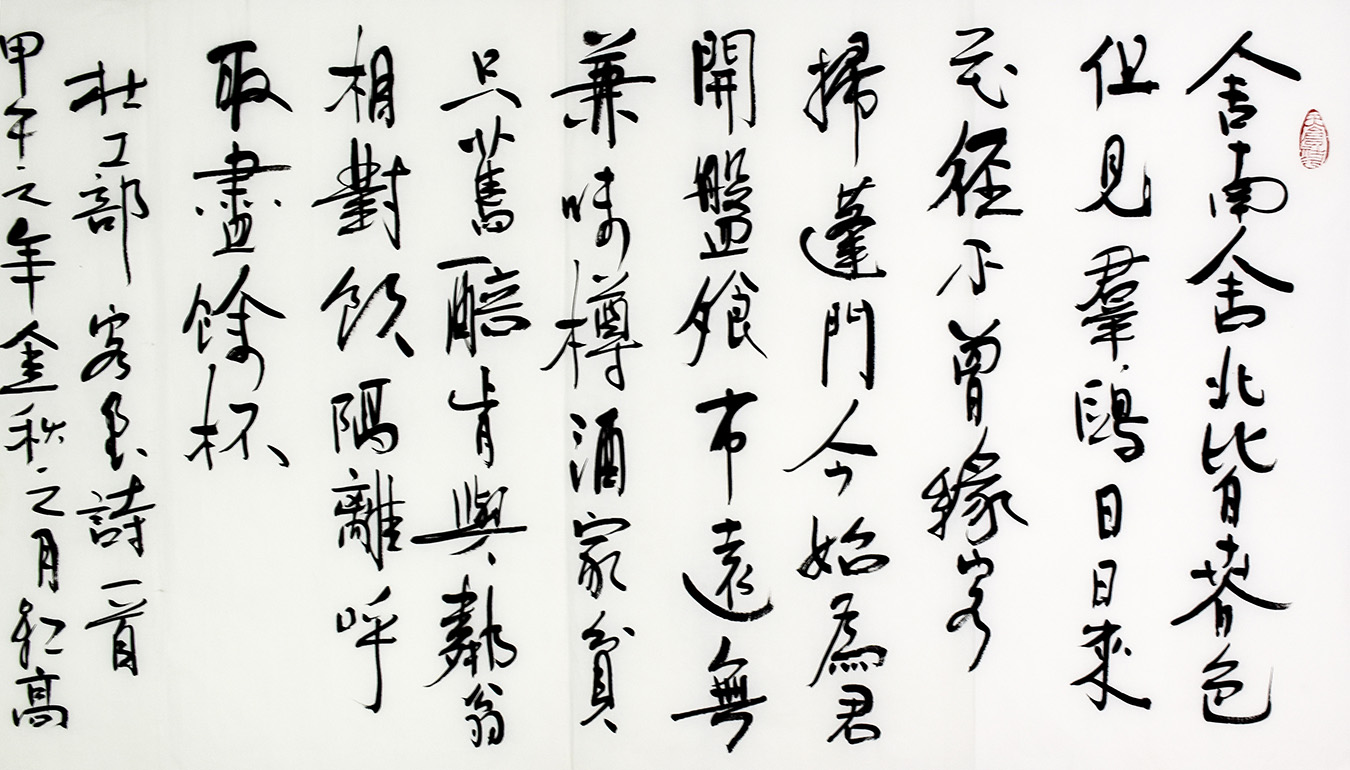 舍南舍北皆春色
但見羣鷗日日來
花徑不曾緣客
掃蓬門今始為君
開盤飧市遠無
兼味樽酒家貧
只舊醅肯與鄰翁
相對飲隔離呼
取盡餘杯
杜工部客至詩一首
甲午之年金秋之月高